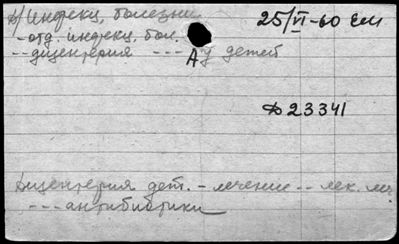 н/ инфекц. болезни 25/VI-60 Ем
- отд. инфекц. бол.
-- дизентерия --- А у детей
Д 23341
Дизентерия дет. - лечение -- лек. леч.
--- антибиотики